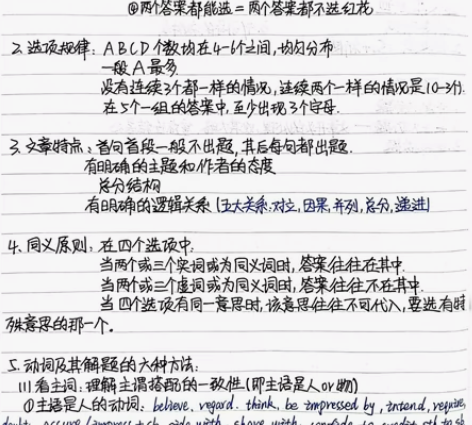 ④两个答案都能选=两个答案都不选
2. 选项规律: ABCD个数均在4-6个之间,均匀分布
一般A最多
没有连续3个都一样的情况,连续两个一样的情况是
在5个一组的答案中,至少出现3个字母.
3. 文章特点: 首句首段一般不出题,其后每句都出题.
有明确的主题和作者的态度
总分结构
有明确的逻辑关系(五大关系:对立,因果,并列,总分,递进)
4. 同义原则: 在四个选项中.
当两个或三个实词成为同义词时,答案往往在其中.
当两个或三个虚词成为同义词时,答案往往不在其中.
当四个选项有同一意思时,该意思往往不可代入,要选有特
殊意思的那一个。
5. 动词及其解题的六种方法:
(1)看主词:理解主谓搭配的一致性(即主语是人or物)
①主语是人的动词: believe, regard, think, be impressed by, intend, require,